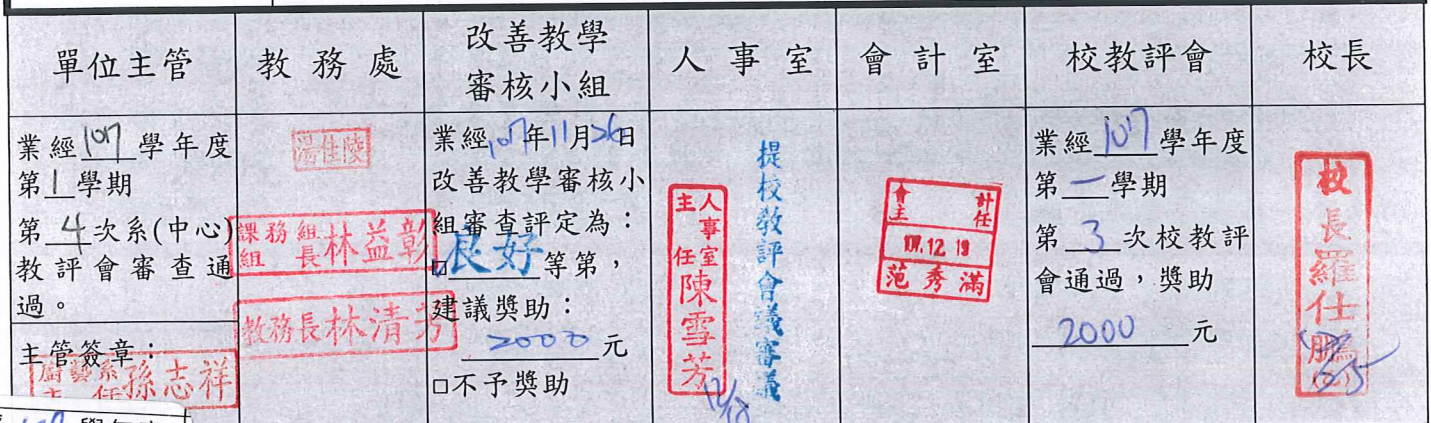 單位主管
教務處
改善教學
審核小組
人事室
會計室
校教評會
校長
業經107學年度
第1學期
第4次系(中心)
教評會審查通
過。
主管簽章：
廚藝系
主任孫志祥
湯佳陵
課務組
組長林益彰
教務長林清芳
業經107年11月26日
改善教學審核小
組審查評定為：
□良好等第，
建議獎助：
2000元
□不予獎助
提校教評會議審議
人事室
主任陳雪芳
12/18
會計
主任
107.12.19
范秀滿
業經107學年度
第一學期
第3次校教評
會通過，獎助
2000元
校長羅仕鵬
學年